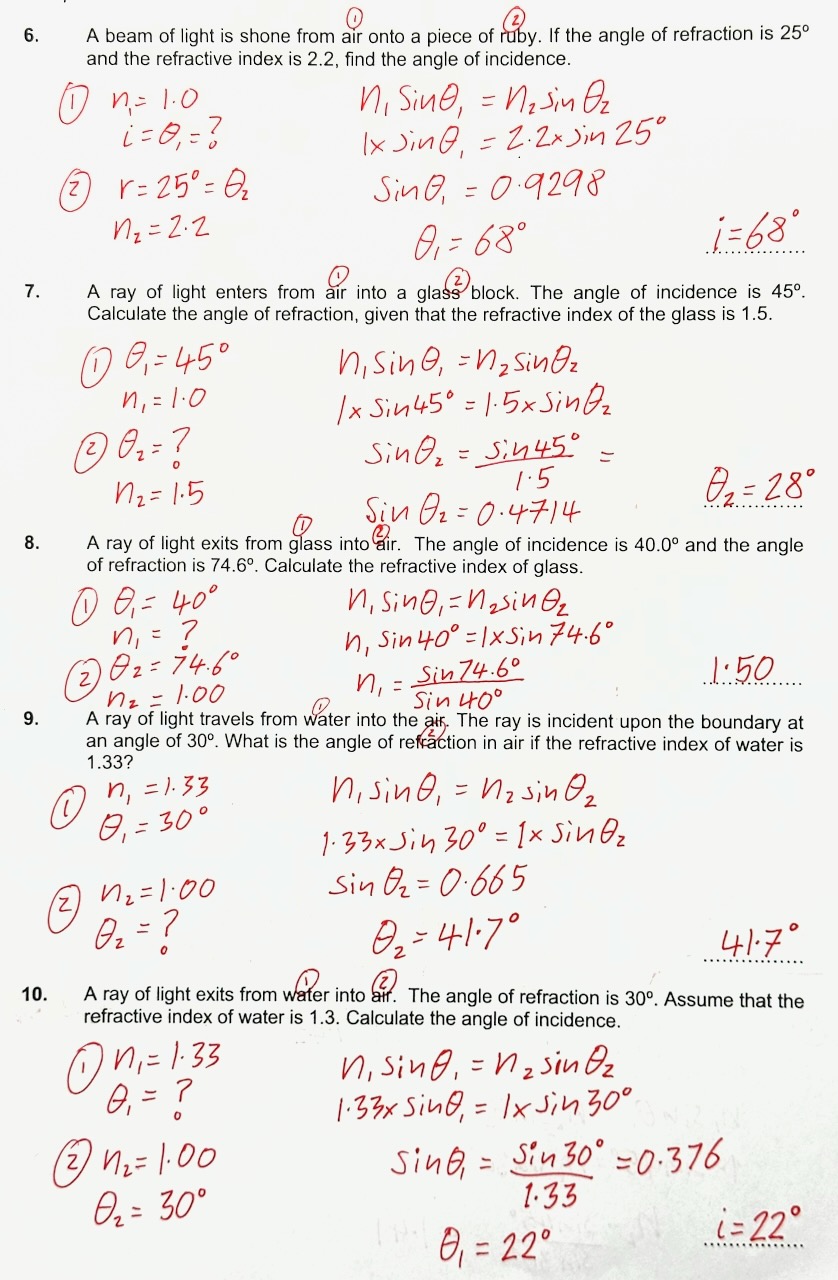 6. A beam of light is shone from air onto a piece of ruby. If the angle of refraction is 25º
① ②
and the refractive index is 2.2, find the angle of incidence.
① n₁ = 1.0
i = θ₁ = ?
② r = 25° = θ₂
n₂ = 2.2
n₁ Sinθ₁ = n₂ sin θ₂
1 x sin θ₁ = 2.2 x sin 25°
Sinθ₁ = 0.9298
θ₁ = 68°
i = 68°
7. A ray of light enters from air into a glass block. The angle of incidence is 45º.
① ②
Calculate the angle of refraction, given that the refractive index of the glass is 1.5.
① θ₁ = 45°
n₁ = 1.0
② θ₂ = ?
n₂ = 1.5
n₁ sin θ₁ = n₂ sin θ₂
1 x sin 45° = 1.5 x sin θ₂
sin θ₂ = sin 45° / 1.5 =
Sin θ₂ = 0.4714
θ₂ = 28°
8. A ray of light exits from glass into air. The angle of incidence is 40.0º and the angle
① ②
of refraction is 74.6º. Calculate the refractive index of glass.
① θ₁ = 40°
n₁ = ?
② θ₂ = 74.6°
n₂ = 1.00
n₁ sin θ₁ = n₂ sin θ₂
n₁ sin 40° = 1 x sin 74.6°
n₁ = sin 74.6° / sin 40°
1.50
9. A ray of light travels from water into the air. The ray is incident upon the boundary at
① ②
an angle of 30º. What is the angle of refraction in air if the refractive index of water is
1.33?
① n₁ = 1.33
θ₁ = 30°
② n₂ = 1.00
θ₂ = ?
n₁ sin θ₁ = n₂ sin θ₂
1.33 x sin 30° = 1 x sin θ₂
sin θ₂ = 0.665
θ₂ = 41.7°
41.7°
10. A ray of light exits from water into air. The angle of refraction is 30º. Assume that the
① ②
refractive index of water is 1.3. Calculate the angle of incidence.
① n₁ = 1.33
θ₁ = ?
② n₂ = 1.00
θ₂ = 30°
n₁ sin θ₁ = n₂ sin θ₂
1.33 x sin θ₁ = 1 x sin 30°
sin θ₁ = sin 30° / 1.33 = 0.376
θ₁ = 22°
i = 22°